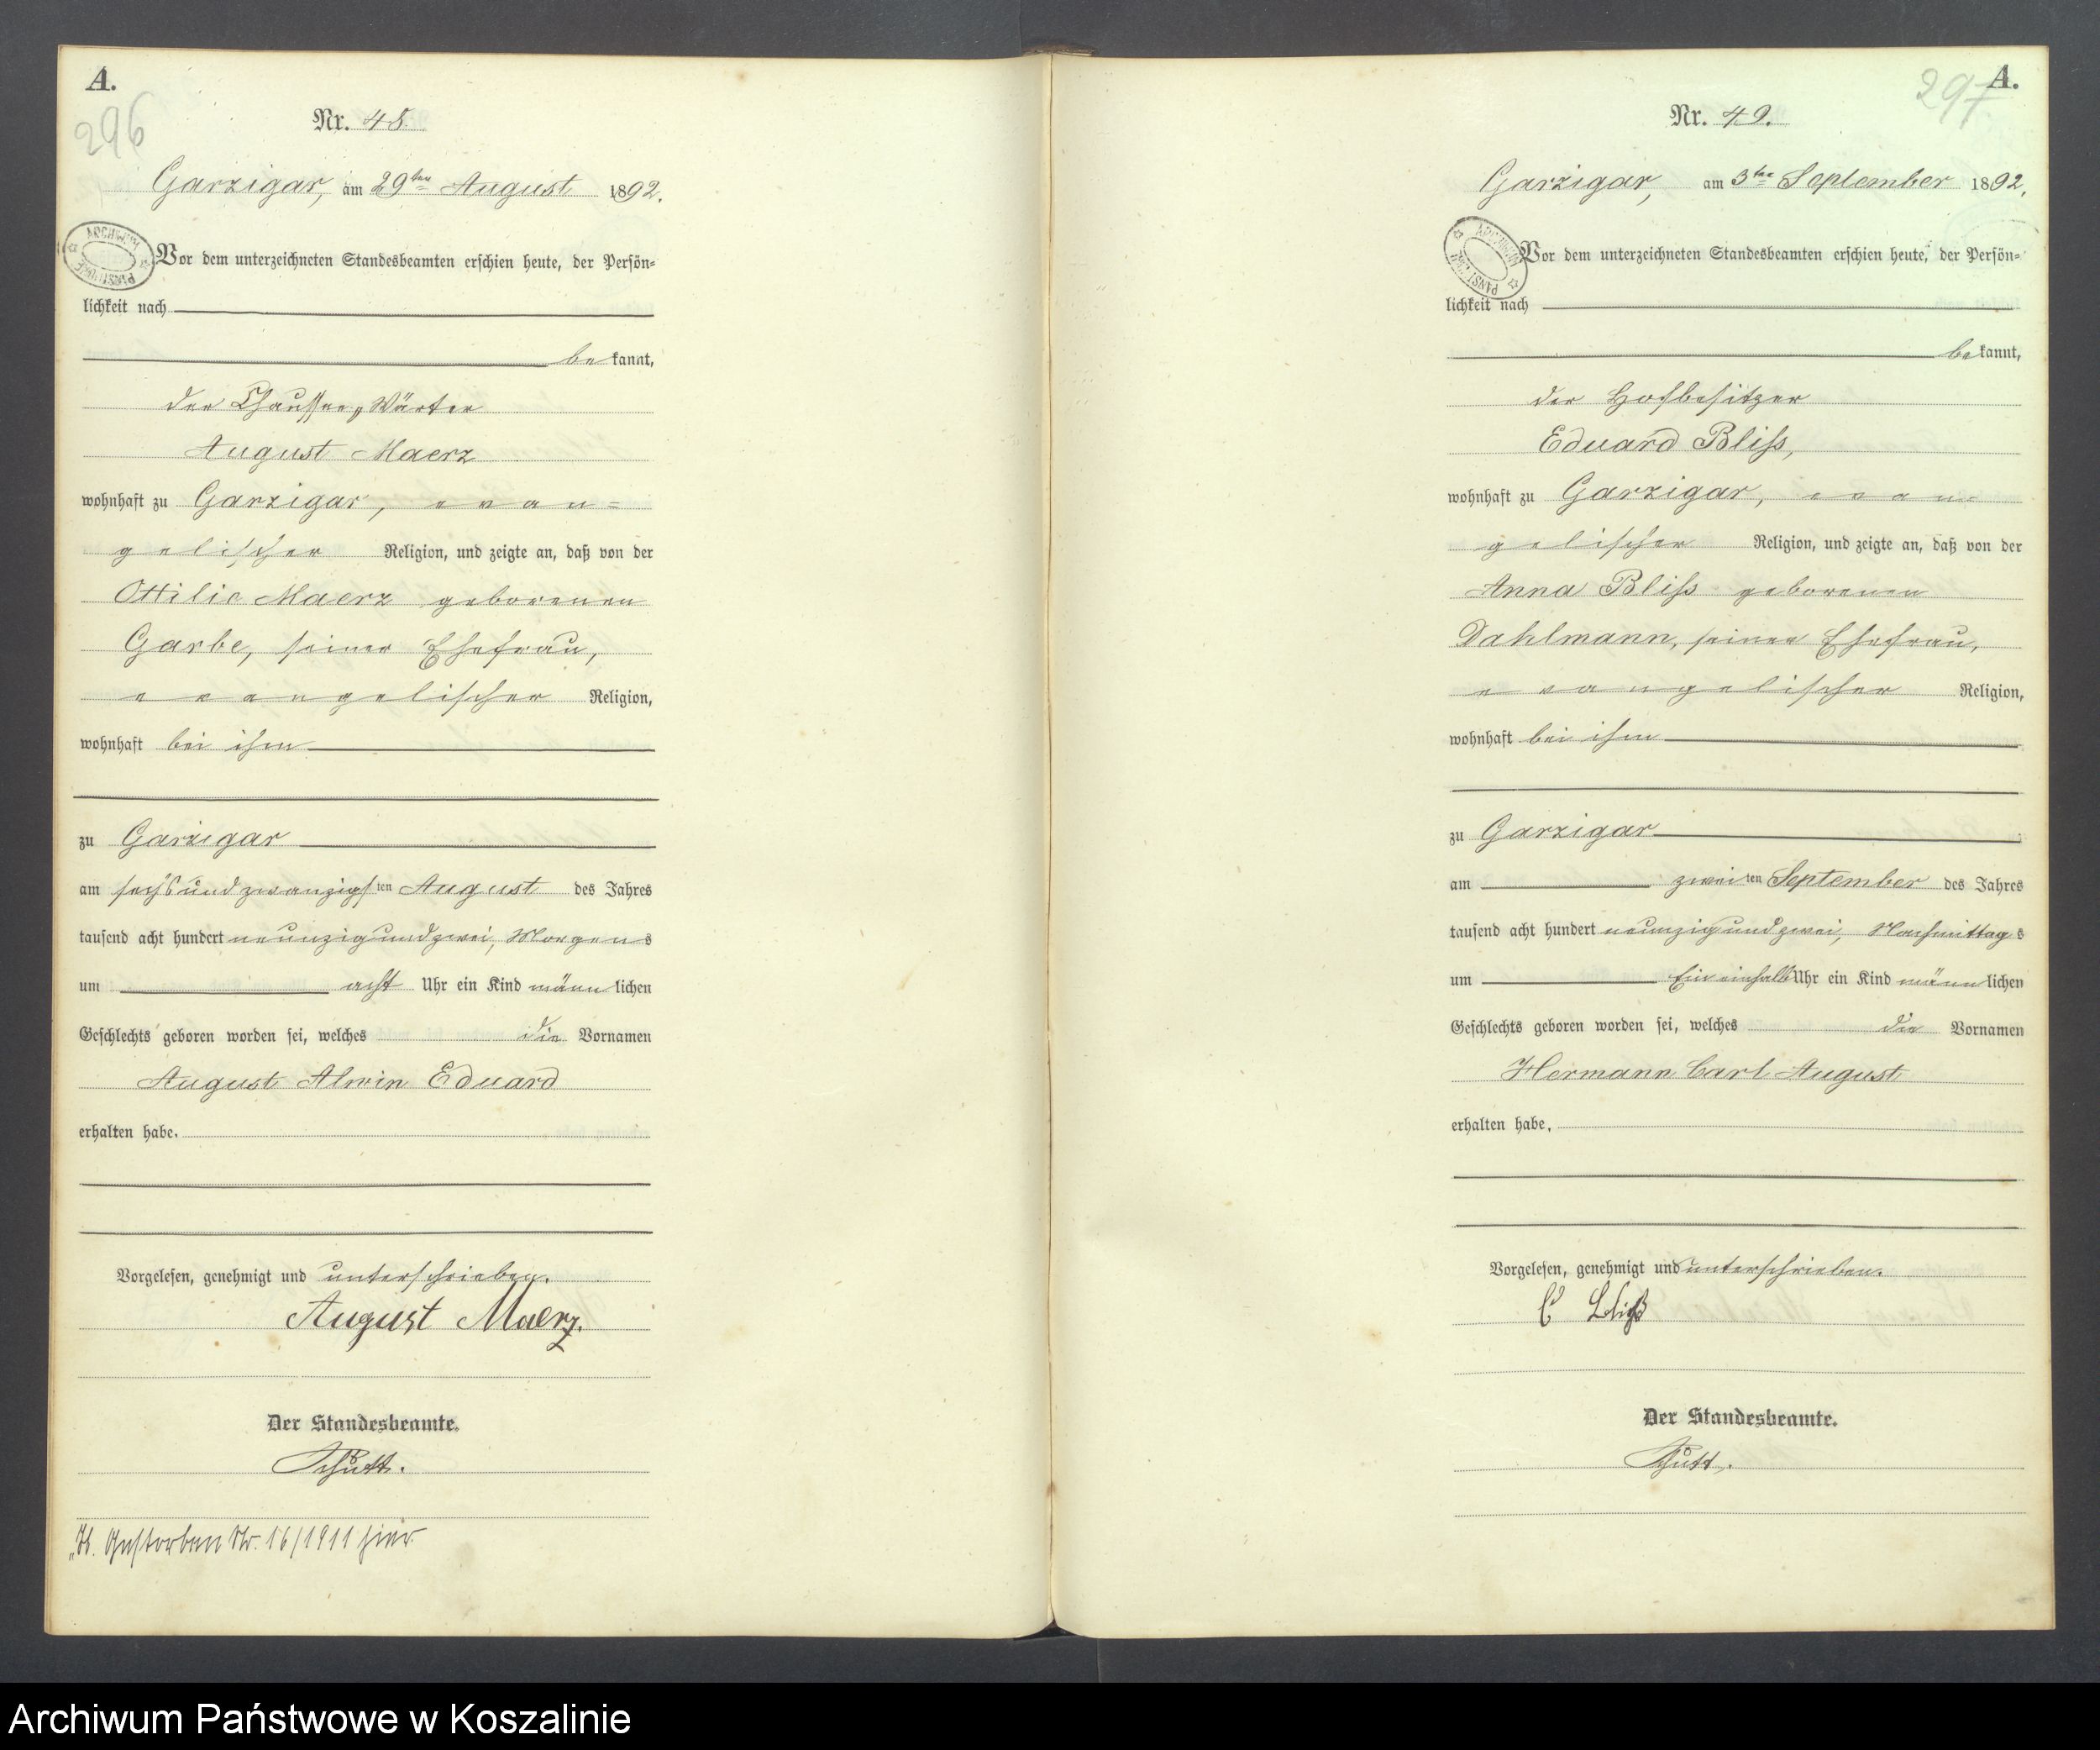 A.
296
Nr. 48.
Garzigar, am 29ten August 1892.
ARCHIWUM PAŃSTWOWE
Vor dem unterzeichneten Standesbeamten erschien heute, der Persön=
lichkeit nach
bekannt,
der Chaussee-Wärter
August Maerz
wohnhaft zu Garzigar, evan=
gelischer Religion, und zeigte an, daß von der
Ottilie Maerz geborenen
Garbe, seiner Ehefrau,
evangelischer Religion,
wohnhaft bei ihm
zu Garzigar
am sechsundzwanzigsten August des Jahres
tausend acht hundert neunzigundzwei, Morgens
um acht Uhr ein Kind männlichen
Geschlechts geboren worden sei, welches die Vornamen
August Alwin Eduard
erhalten habe.
Vorgelesen, genehmigt und unterschrieben.
August Maerz.
Der Standesbeamte.
Schütt.
Gestorben Nr. 16/1911 hier.
A.
297
Nr. 49.
Garzigar, am 3ten September 1892.
ARCHIWUM PAŃSTWOWE
Vor dem unterzeichneten Standesbeamten erschien heute, der Persön=
lichkeit nach
bekannt,
der Hofbesitzer
Eduard Bliß,
wohnhaft zu Garzigar, evan=
gelischer Religion, und zeigte an, daß von der
Anna Bliß geborenen
Dahlmann, seiner Ehefrau,
evangelischer Religion,
wohnhaft bei ihm
zu Garzigar
am zweiten September des Jahres
tausend acht hundert neunzigundzwei, Nachmittags
um Eineinhalb Uhr ein Kind männlichen
Geschlechts geboren worden sei, welches die Vornamen
Hermann Carl August
erhalten habe.
Vorgelesen, genehmigt und unterschrieben.
E Bliß
Der Standesbeamte.
Schütt.
Archiwum Państwowe w Koszalinie